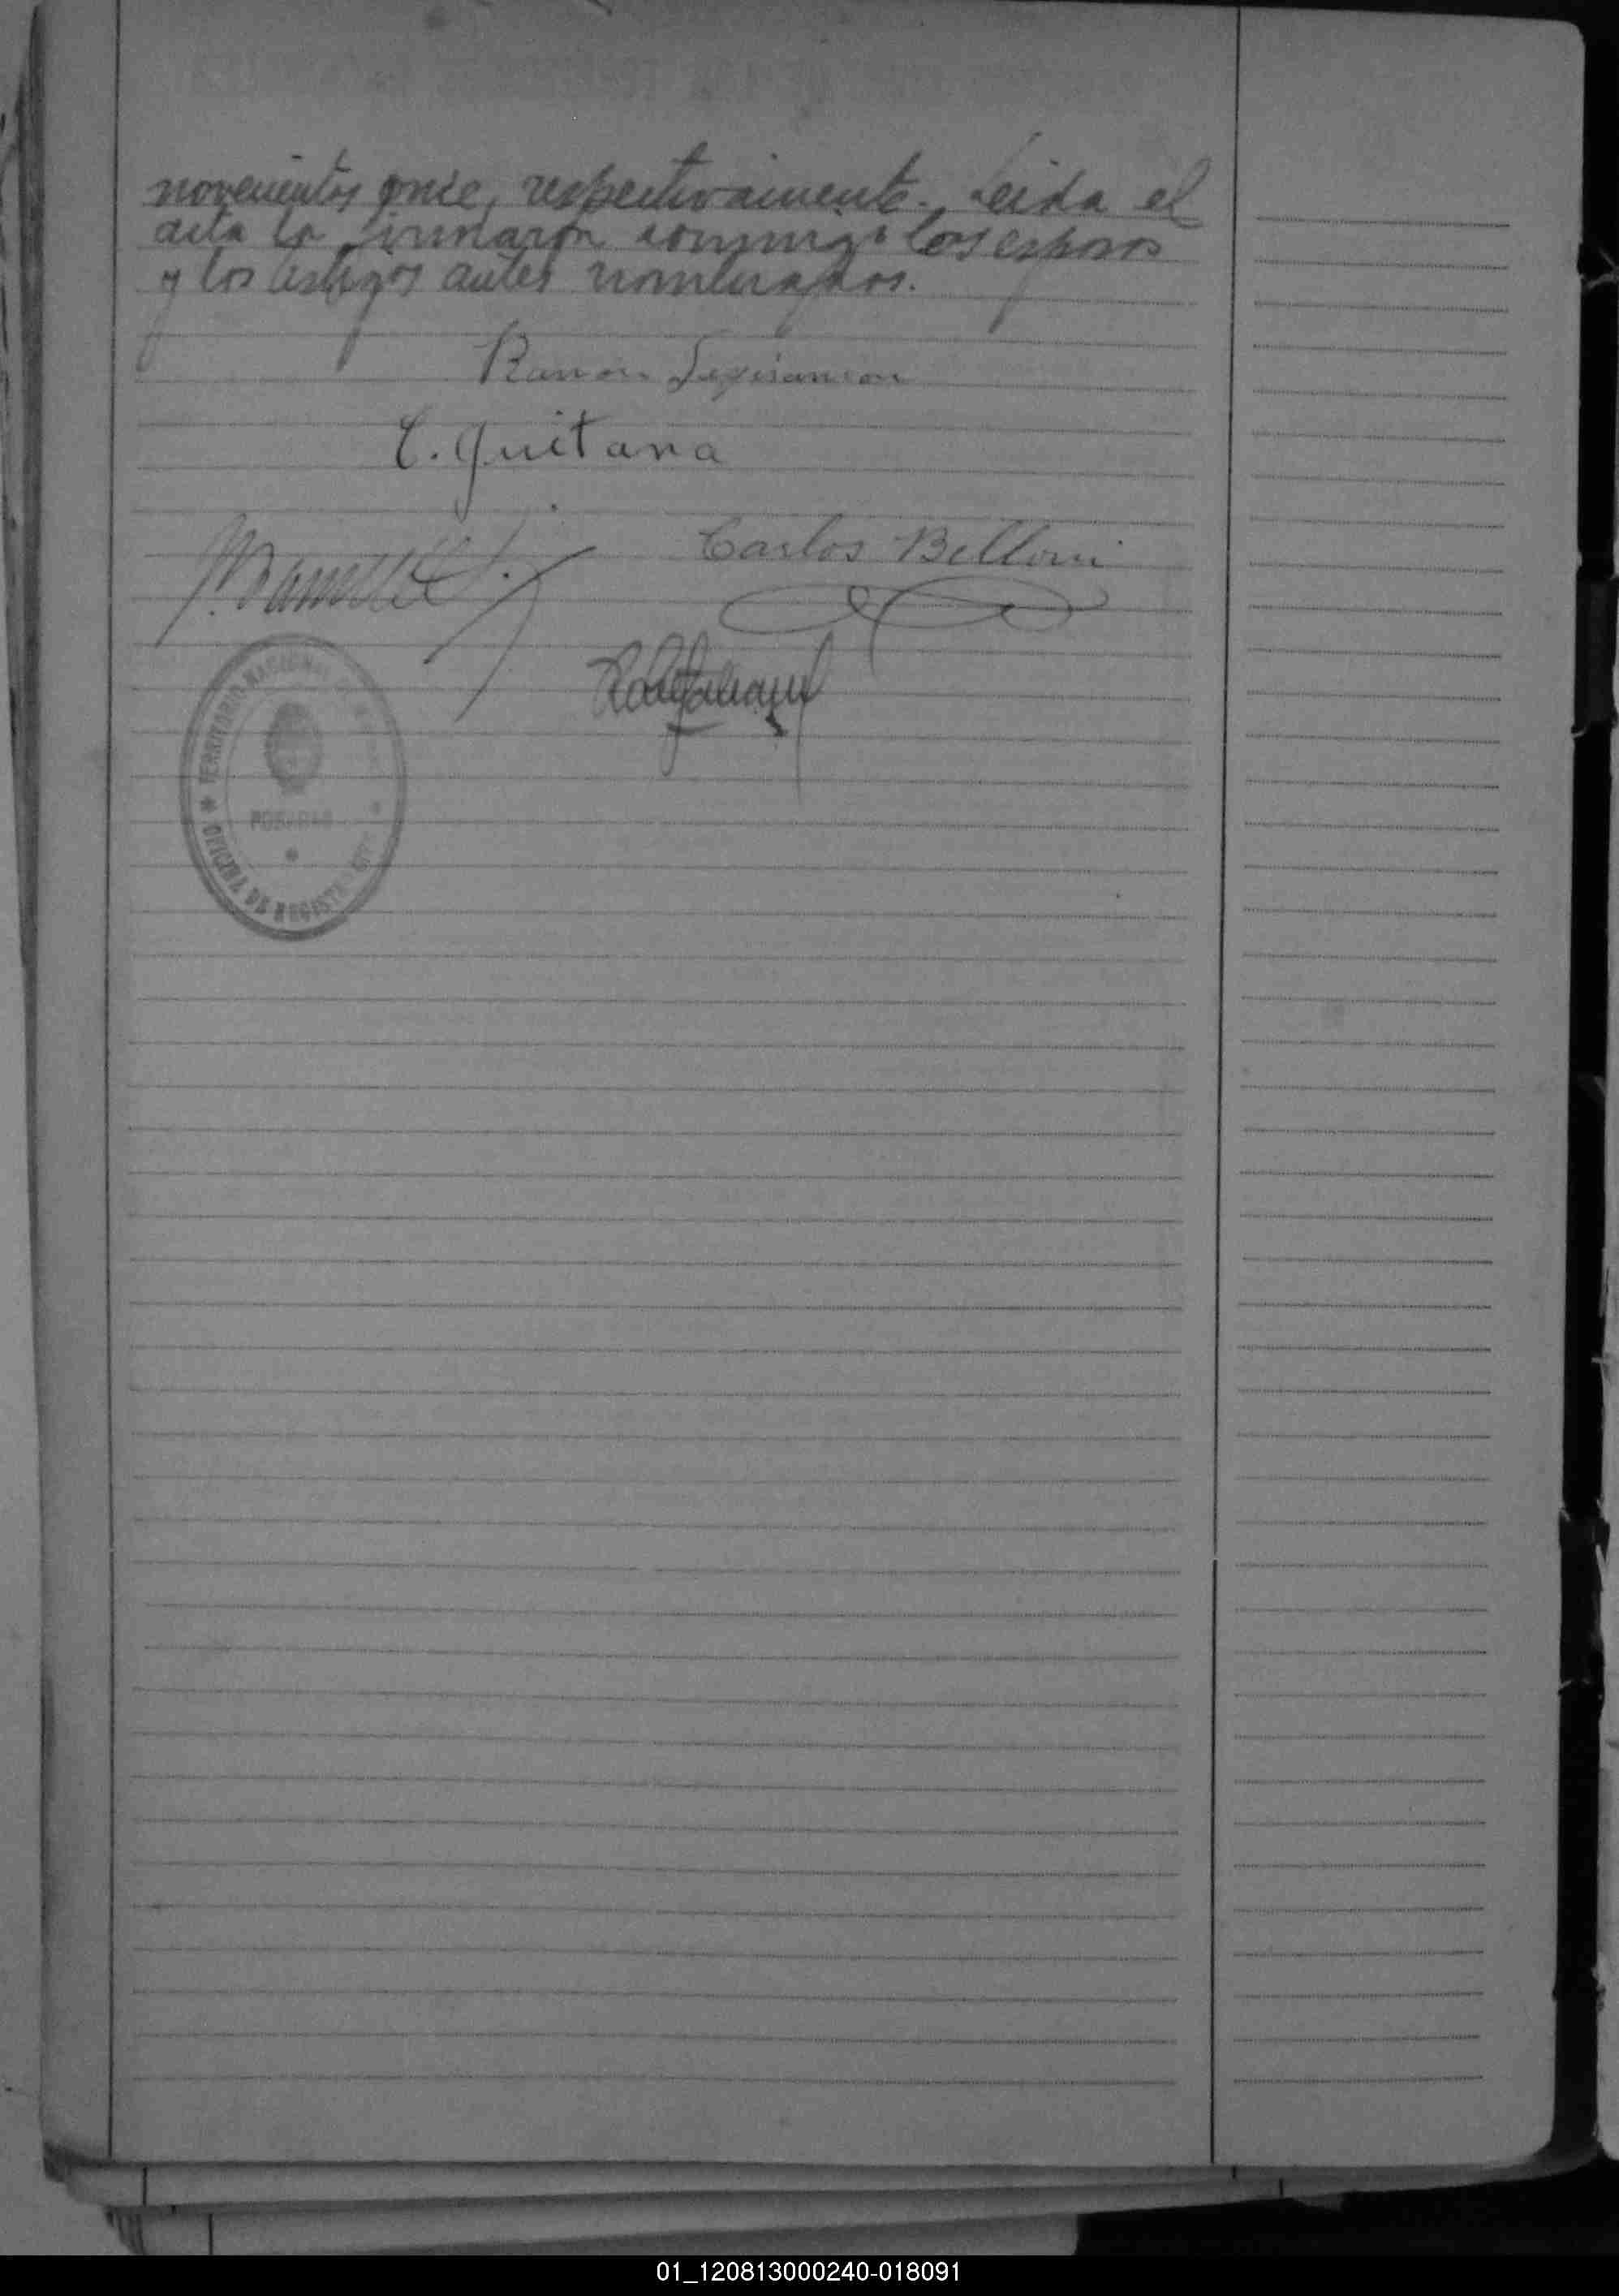 novecientos once, respectivamente. Leida el
acta la firmaron conmigo los esposos
y los testigos antes nombrados.
Ramon
C. Quitana
Carlos Belloni
TERRITORIO NACIONAL
POSADAS
OFICINA DE REGISTRO
01_120813000240-018091